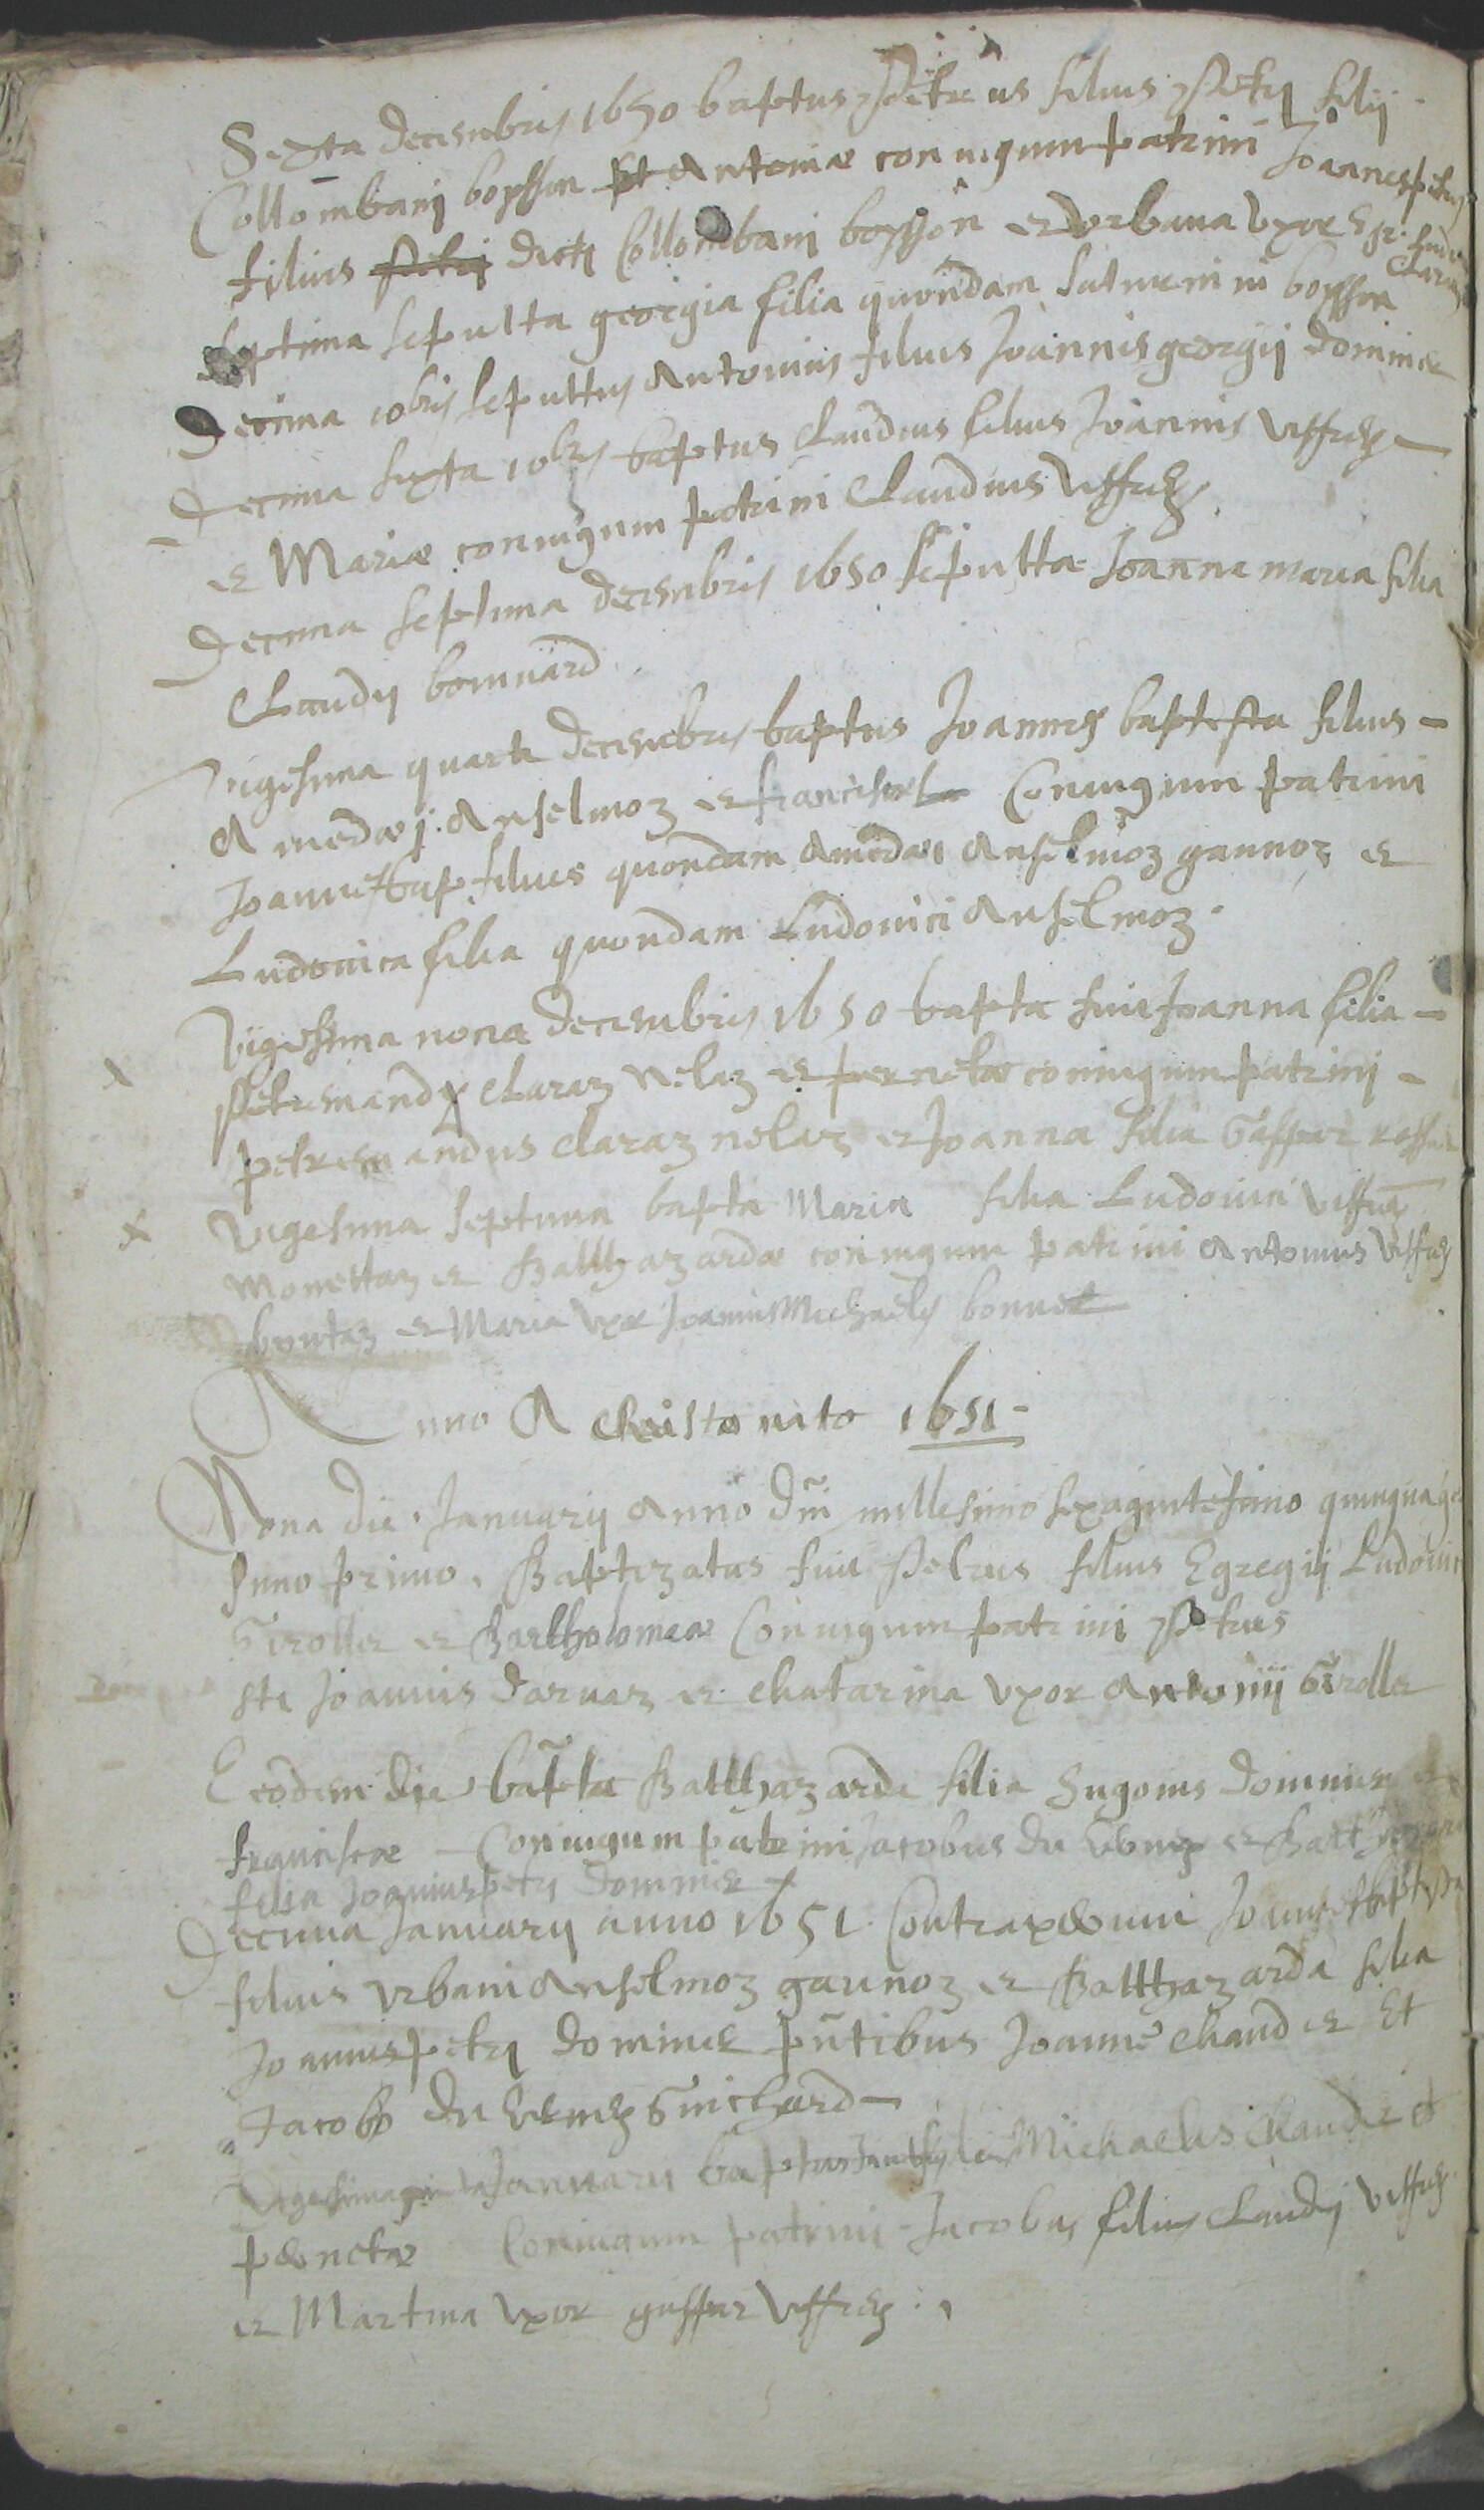 Sexta decembris 1650 baptus Petrus filius Petri filii
Collombani bosson et Antoniæ coniugum patrini Joannespetrus
filius Petri dicti Collombani bosson et Vrbana vxor Egr.
Septima sepulta georgia filia quondam saturnini bosson
Decima 10bris sepultus Antonius filius Joannisgeorgii Dominier
Decima sexta 10bris baptus Claudius filius Joannis Vuffrey
et Mariæ coniugum patrini Claudius Vuffrey
Decima septima decembris 1650 sepulta Joanna maria filia
Claudii bonnard
Vigesima quarta decembris baptus Joannes baptesta filius
Amedæi Anselmoz et franciscæ Coniugum patrini
Joannesbap filius quondam Amedæi Anselmoz gannoz et
Ludovica filia quondam Ludovici Anselmoz
Vigesima nona decembris 1650 bapta fuit Joanna filia
Petremandi Claraz nelaz et pernetæ coniugum patrini
petremandus claraz nelaz et Joanna filia Gaspar
Vigesima septima bapta Maria filia Ludovici Vuffrey
Monettaz et Balthazardæ coniugum patrini Antonius Vuffrey
et Maria vxor Joannis Michaelis bonnet
Anno A christo nato 1651
Nona die Januarii Anno Dni millesimo sexagintesimo quinquage
simo primo Baptizatus fuit Petrus filius Egregii Ludovici
Girollet et Bartholomeæ Coniugum patrini Petrus
Joannis darnaz et chatarina vxor Antonii Girollet
Eeodem die bapta Balthazarda filia Hugonis Dominier et
franciscæ Coniugum patrini Jacobus du Verney et
filia Joannispetri Dominier
Decima Januarii anno 1651 Contraxerunt Joannesbaptista
filius vrbani Anselmoz gannoz et Balthazarda filia
Joannispetri Dominier pntibus Joanne chaudet Et
Jacobo du Verney Guichard
Januarii Michaelis chaudet et
pernetæ Coniugum patrini Jacobus filius Claudii Vuffrey
et Martina vxor gaspar Vuffrey